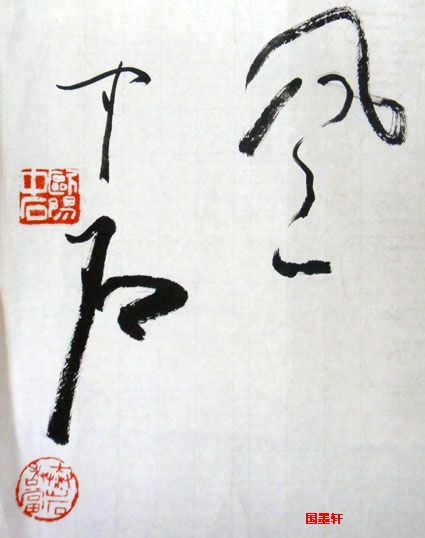 風
中石
歐陽中石
国墨轩